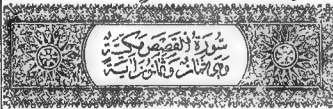 سورة القصص مكية
وهى ثمان وثمانون اية